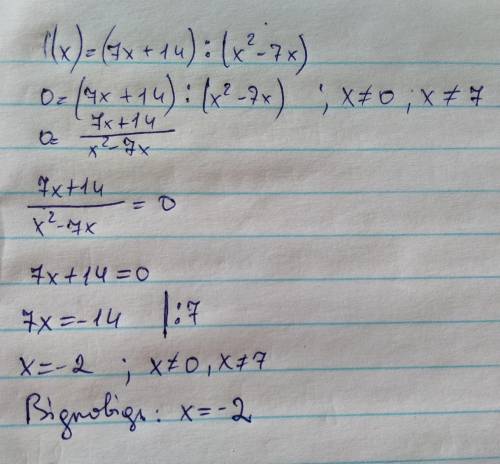 f(x)=(7x+14):(x²-7x)
0=(7x+14):(x²-7x) ; x≠0 ; x≠7
0= (7x+14)/(x²-7x)
(7x+14)/(x²-7x) = 0
7x+14=0
7x=-14 |:7
x=-2 ; x≠0, x≠7
Відповідь: x=-2